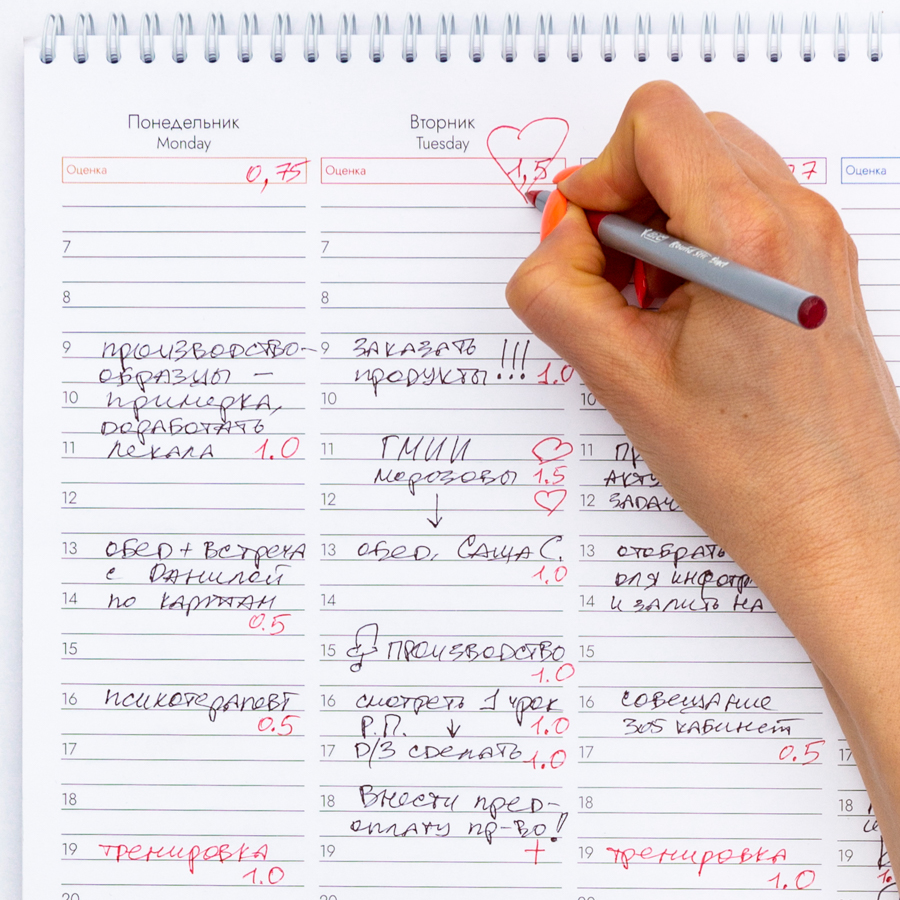 Понедельник
Monday
Оценка 0,75
7
8
9 производство-
образцы –
10 примерка,
доработать
11 лекала 1.0
12
13 обед + встреча
с Данилой
14 по картам
0.5
15
16 психотерапевт
0.5
17
18
19 тренировка
1.0
20
Вторник
Tuesday
Оценка 1,5
7
8
9 заказать
продукты !!! 1.0
10
11 ГМИИ
Морозовы 1.5
12
13 обед, Саша С.
1.0
14
15 производство
1.0
16 смотреть 1 урок
Р.П. 1.0
17 Д/З сделать 1.0
18 Внести пред-
оплату пр-во!
19 +
20
7
10
11
12 задач
13 отобрать
для
14 и залить на
15
16 совещание
305 кабинет
17 0.5
18
19 тренировка
1.0
Оценка
17
18
19